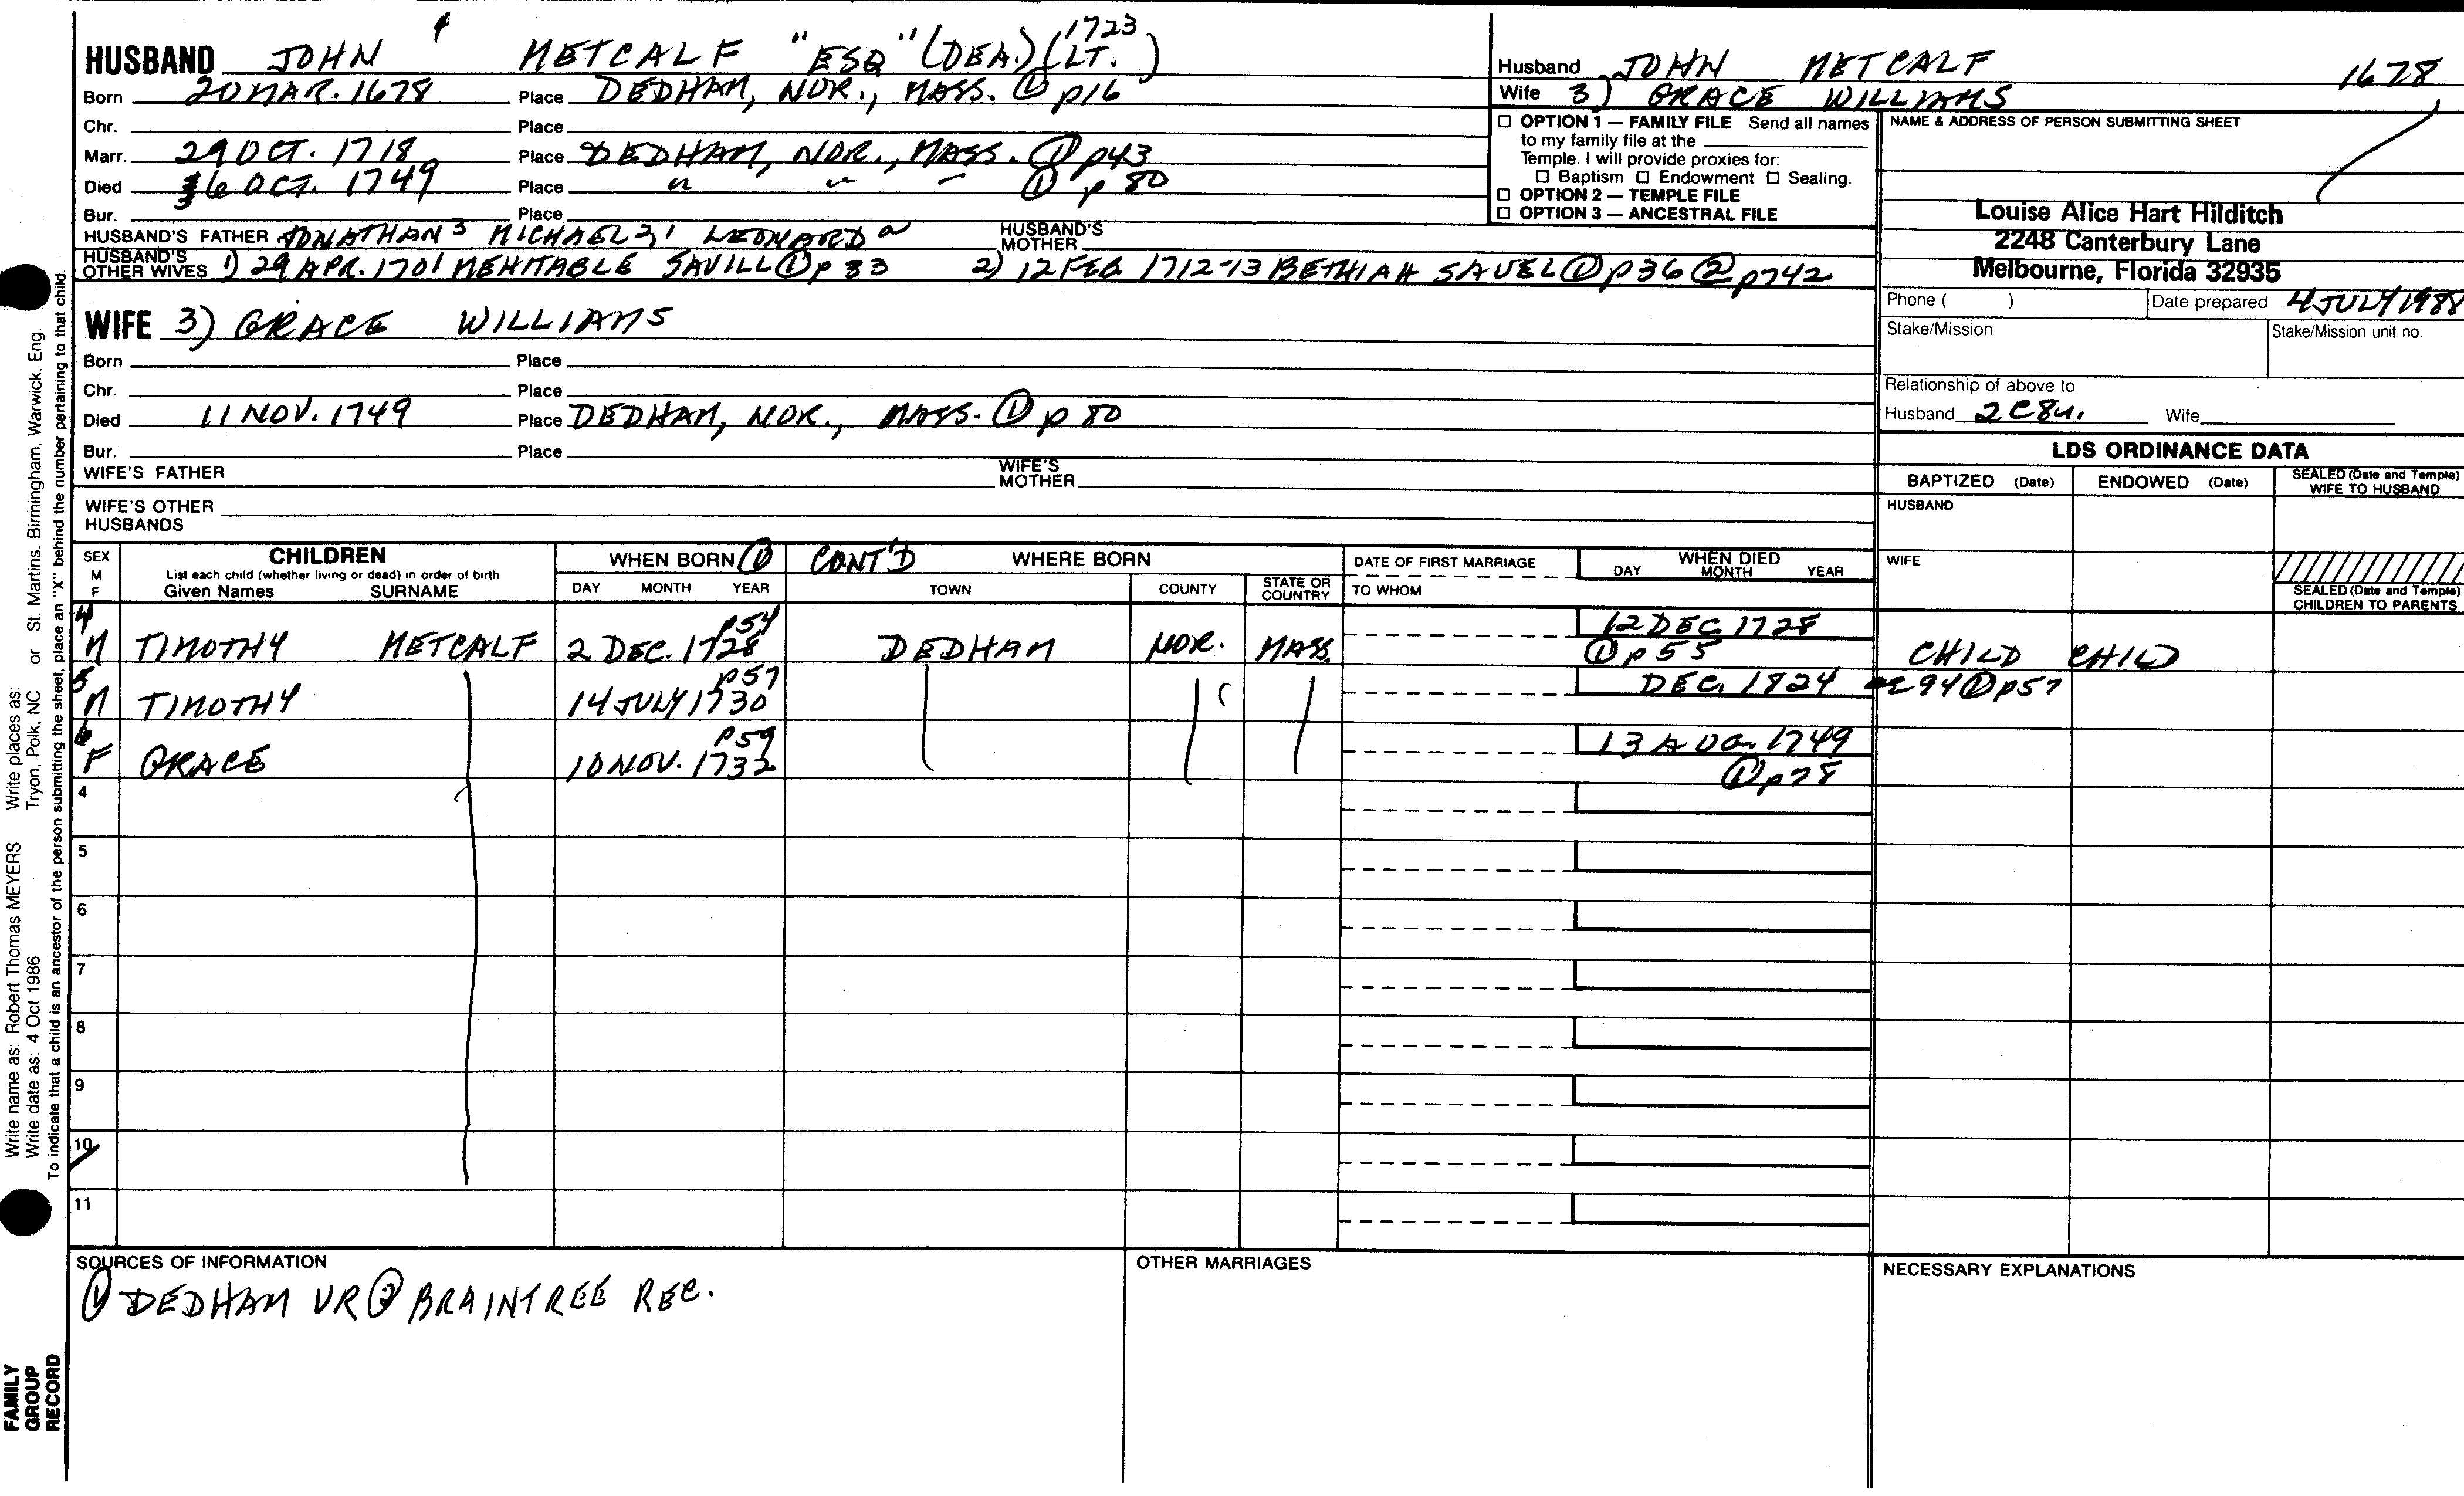 HUSBAND JOHN 4 METCALF "ESQ" (DEA.) (LT. 1723)
Born 20 MAR. 1678 Place DEDHAM, NOR., MASS. ① p16
Chr. Place
Marr. 29 OCT. 1718 Place DEDHAM, NOR., MASS. ① p43
Died 6 OCT. 1749 Place " " " ① p 80
Bur. Place
HUSBAND'S FATHER JONATHAN 3 MICHAEL 2,1 LEONARD a HUSBAND'S MOTHER
HUSBAND'S OTHER WIVES 1) 29 APR. 1701 MEHITABLE SAVILL ① p 33 2) 12 FEB. 1712-13 BETHIAH SAVEL ① p36 ② p742
WIFE 3) GRACE WILLIAMS
Born Place
Chr. Place
Died 11 NOV. 1749 Place DEDHAM, NOR., MASS. ① p 80
Bur. Place
WIFE'S FATHER WIFE'S MOTHER
WIFE'S OTHER HUSBANDS
Husband JOHN METCALF 1678
Wife 3) GRACE WILLIAMS
☐ OPTION 1 — FAMILY FILE Send all names
to my family file at the
Temple. I will provide proxies for:
☐ Baptism ☐ Endowment ☐ Sealing.
☐ OPTION 2 — TEMPLE FILE
☐ OPTION 3 — ANCESTRAL FILE
NAME & ADDRESS OF PERSON SUBMITTING SHEET
Louise Alice Hart Hilditch
2248 Canterbury Lane
Melbourne, Florida 32935
Phone ( ) Date prepared 4 JULY 1988
Stake/Mission Stake/Mission unit no.
Relationship of above to:
Husband 2C8u. Wife
LDS ORDINANCE DATA
BAPTIZED (Date) ENDOWED (Date) SEALED (Date and Temple) WIFE TO HUSBAND
HUSBAND
WIFE
SEALED (Date and Temple) CHILDREN TO PARENTS
SEX M F CHILDREN WHEN BORN ① CONT'D WHERE BORN DATE OF FIRST MARRIAGE WHEN DIED
List each child (whether living or dead) in order of birth
Given Names SURNAME DAY MONTH YEAR TOWN COUNTY STATE OR COUNTRY TO WHOM DAY MONTH YEAR
4 M TIMOTHY METCALF 2 DEC. 1728 p54 DEDHAM NOR. MASS. 12 DEC 1728 ① p55 CHILD CHILD
5 M TIMOTHY 14 JULY 1730 p57 DEC. 1824 94 ① p57
6 F GRACE 10 NOV. 1732 p59 13 AUG. 1749 ① p78
4
5
6
7
8
9
10
11
SOURCES OF INFORMATION
① DEDHAM VR ② BRAINTREE REC.
OTHER MARRIAGES
NECESSARY EXPLANATIONS
Write name as: Robert Thomas MEYERS Write places as: St. Martins, Birmingham, Warwick, Eng.
Write date as: 4 Oct 1986 Tryon, Polk, NC or
To indicate that a child is an ancestor of the person submitting the sheet, place an "X" behind the number pertaining to that child.
FAMILY
GROUP
RECORD